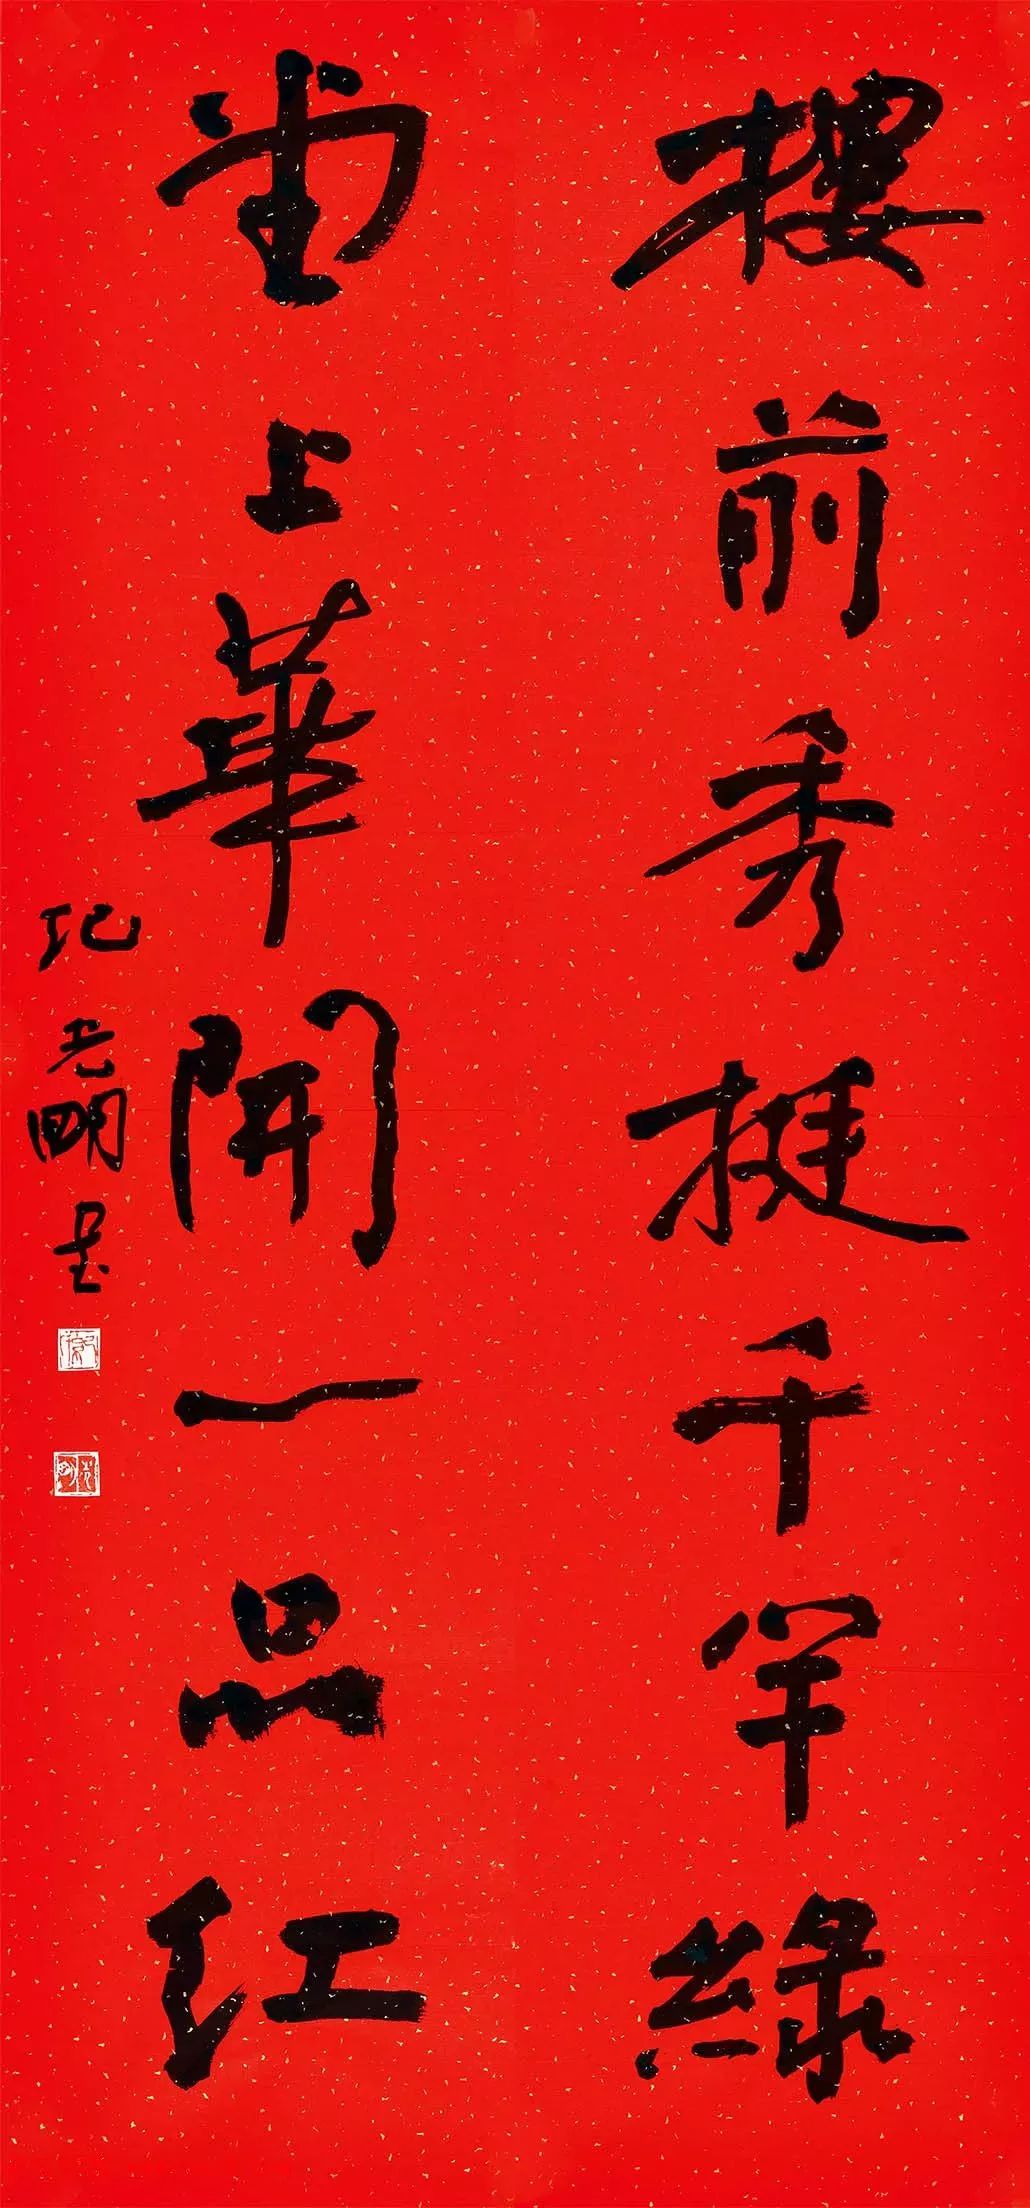 樓前秀挺千竿綠
堂上華開一品紅
紀光明書